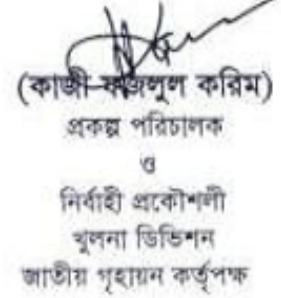 (কাজী ফজলুল করিম)
প্রকল্প পরিচালক
ও
নির্বাহী প্রকৌশলী
খুলনা ডিভিশন
জাতীয় গৃহায়ন কর্তৃপক্ষ